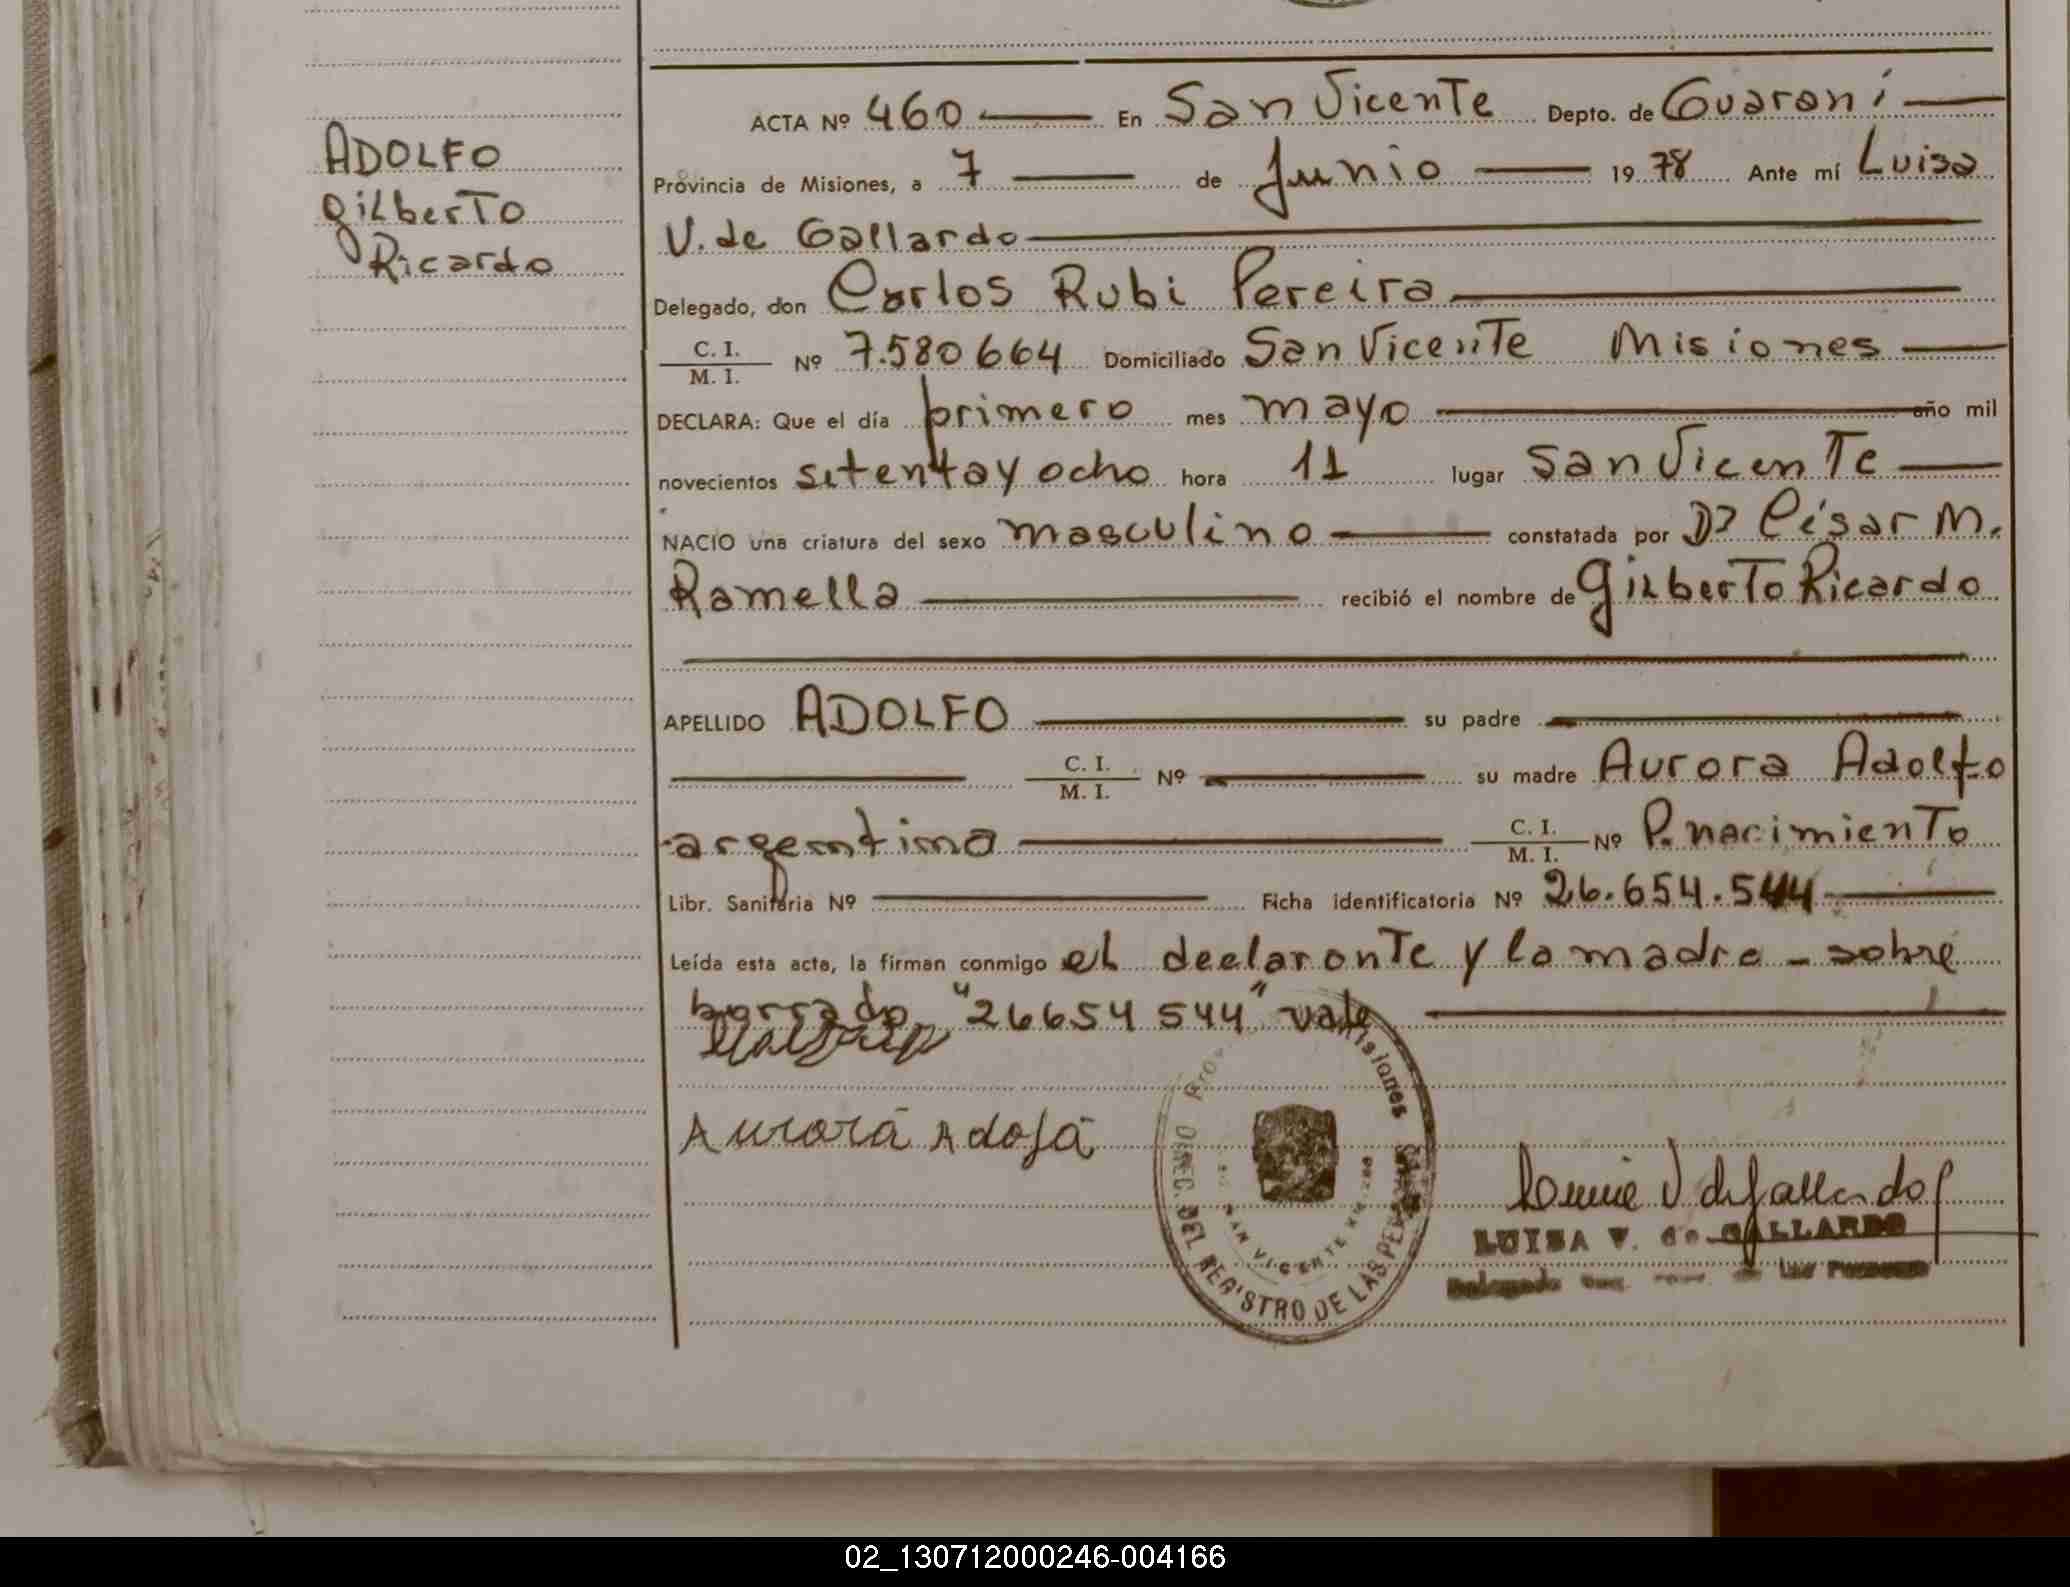 ADOLFO
Gilberto
Ricardo
ACTA Nº 460 En San Vicente Depto. de Guaraní
Provincia de Misiones, a 7 de Junio 19 78 Ante mí Luisa
V. de Gallardo
Delegado, don Carlos Rubi Pereira
C. I.
M. I. Nº 7.580664 Domiciliado San Vicente Misiones
DECLARA: Que el día primero mes mayo año mil
novecientos setenta y ocho hora 11 lugar San Vicente
NACIO una criatura del sexo masculino constatada por Dr César M.
Ramella recibió el nombre de Gilberto Ricardo
APELLIDO ADOLFO su padre
C. I.
M. I. Nº su madre Aurora Adolfo
argentina C. I.
M. I. Nº P. nacimiento
Libr. Sanitaria Nº Ficha identificatoria Nº 26.654.544
Leída esta acta, la firman conmigo el declarante y la madre - sobre
borrado "26654544" vale
Aurora Adolfa
Misiones
DIREC. DEL REGISTRO DE LAS PERSONAS
SAN VICENTE
V de Gallardo
LUISA V. de GALLARDO
Delegada de las Personas
02_130712000246-004166